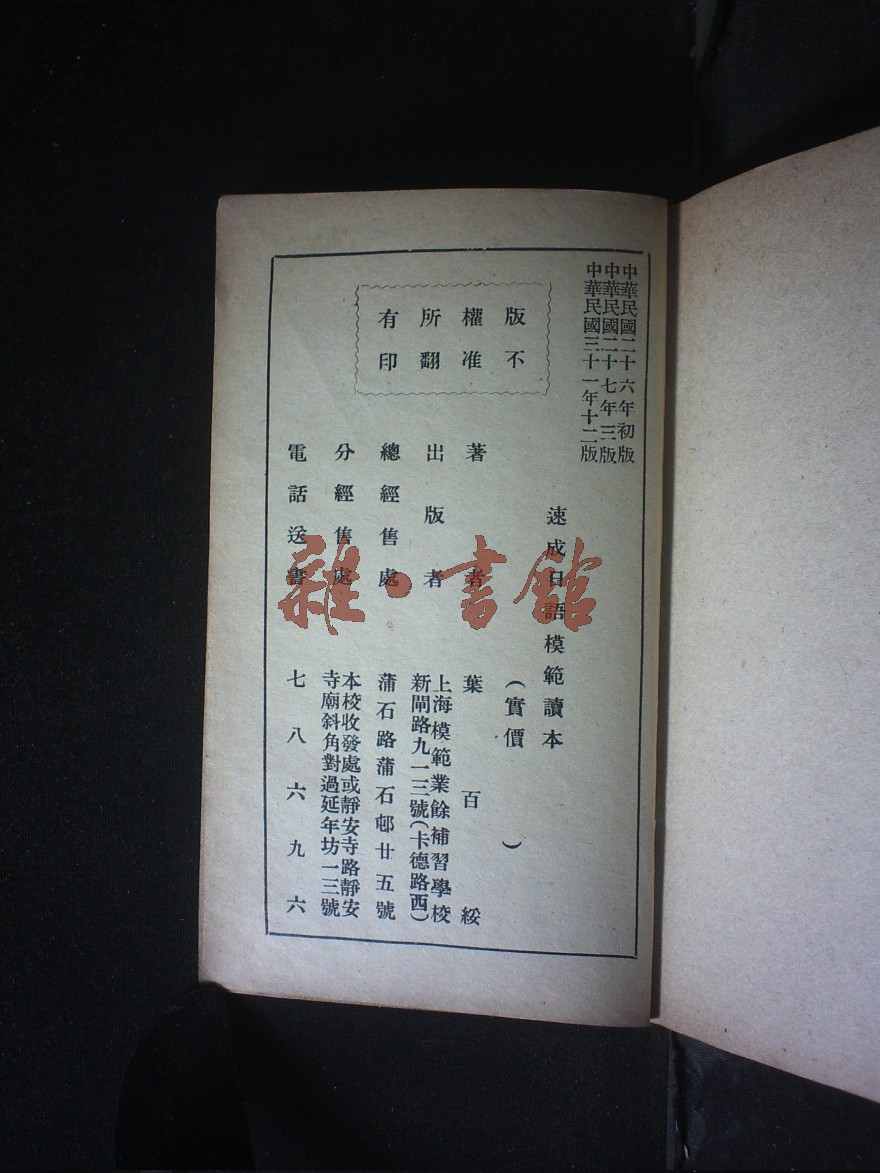 中華民國二十六年初版
中華民國二十七年三版
中華民國三十一年十二版
版權所有
不准翻印
速成日語模範讀本
(實價　)
著者 葉百綏
出版者 上海模範業餘補習學校
新閘路九一三號(卡德路西)
總經售處 蒲石路蒲石邨廿五號
分經售處 本校收發處或靜安寺路靜安
寺廟斜角對過延年坊一三號
電話送書 七八六九六
雜·書館